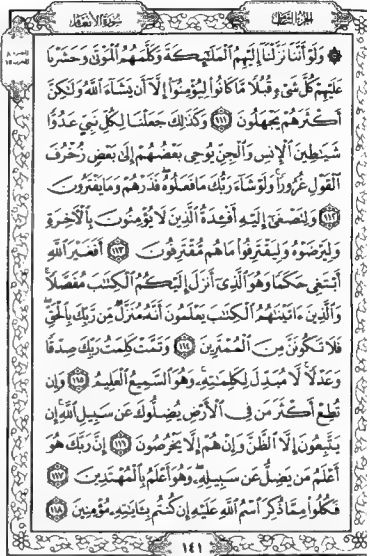 الجزء الثامن
سورة الأنعام
۞ وَلَوْ أَنَّنَا نَزَّلْنَا إِلَيْهِمُ الْمَلَٰٓئِكَةَ وَكَلَّمَهُمُ الْمَوْتَىٰ وَحَشَرْنَا
عَلَيْهِمْ كُلَّ شَىْءٍ قُبُلًا مَّا كَانُوا لِيُؤْمِنُوٓا إِلَّآ أَن يَشَآءَ اللَّهُ وَلَٰكِنَّ
أَكْثَرَهُمْ يَجْهَلُونَ ١١١ وَكَذَٰلِكَ جَعَلْنَا لِكُلِّ نَبِىٍّ عَدُوًّا
شَيَٰطِينَ الْإِنسِ وَالْجِنِّ يُوحِى بَعْضُهُمْ إِلَىٰ بَعْضٍ زُخْرُفَ
الْقَوْلِ غُرُورًا ۚ وَلَوْ شَآءَ رَبُّكَ مَا فَعَلُوهُ ۖ فَذَرْهُمْ وَمَا يَفْتَرُونَ
١١٢ وَلِتَصْغَىٰٓ إِلَيْهِ أَفْـِٔدَةُ الَّذِينَ لَا يُؤْمِنُونَ بِالْءَاخِرَةِ
وَلِيَرْضَوْهُ وَلِيَقْتَرِفُوا مَا هُم مُّقْتَرِفُونَ ١١٣ أَفَغَيْرَ اللَّهِ
أَبْتَغِى حَكَمًا وَهُوَ الَّذِىٓ أَنزَلَ إِلَيْكُمُ الْكِتَٰبَ مُفَصَّلًا ۚ
وَالَّذِينَ ءَاتَيْنَٰهُمُ الْكِتَٰبَ يَعْلَمُونَ أَنَّهُۥ مُنَزَّلٌ مِّن رَّبِّكَ بِالْحَقِّ ۖ
فَلَا تَكُونَنَّ مِنَ الْمُمْتَرِينَ ١١٤ وَتَمَّتْ كَلِمَتُ رَبِّكَ صِدْقًا
وَعَدْلًا ۚ لَّا مُبَدِّلَ لِكَلِمَٰتِهِۦ ۚ وَهُوَ السَّمِيعُ الْعَلِيمُ ١١٥ وَإِن
تُطِعْ أَكْثَرَ مَن فِى الْأَرْضِ يُضِلُّوكَ عَن سَبِيلِ اللَّهِ ۚ إِن
يَتَّبِعُونَ إِلَّا الظَّنَّ وَإِنْ هُمْ إِلَّا يَخْرُصُونَ ١١٦ إِنَّ رَبَّكَ هُوَ
أَعْلَمُ مَن يَضِلُّ عَن سَبِيلِهِۦ ۖ وَهُوَ أَعْلَمُ بِالْمُهْتَدِينَ ١١٧
فَكُلُوا مِمَّا ذُكِرَ اسْمُ اللَّهِ عَلَيْهِ إِن كُنتُم بِـَٔايَٰتِهِۦ مُؤْمِنِينَ ١١٨
١٤١